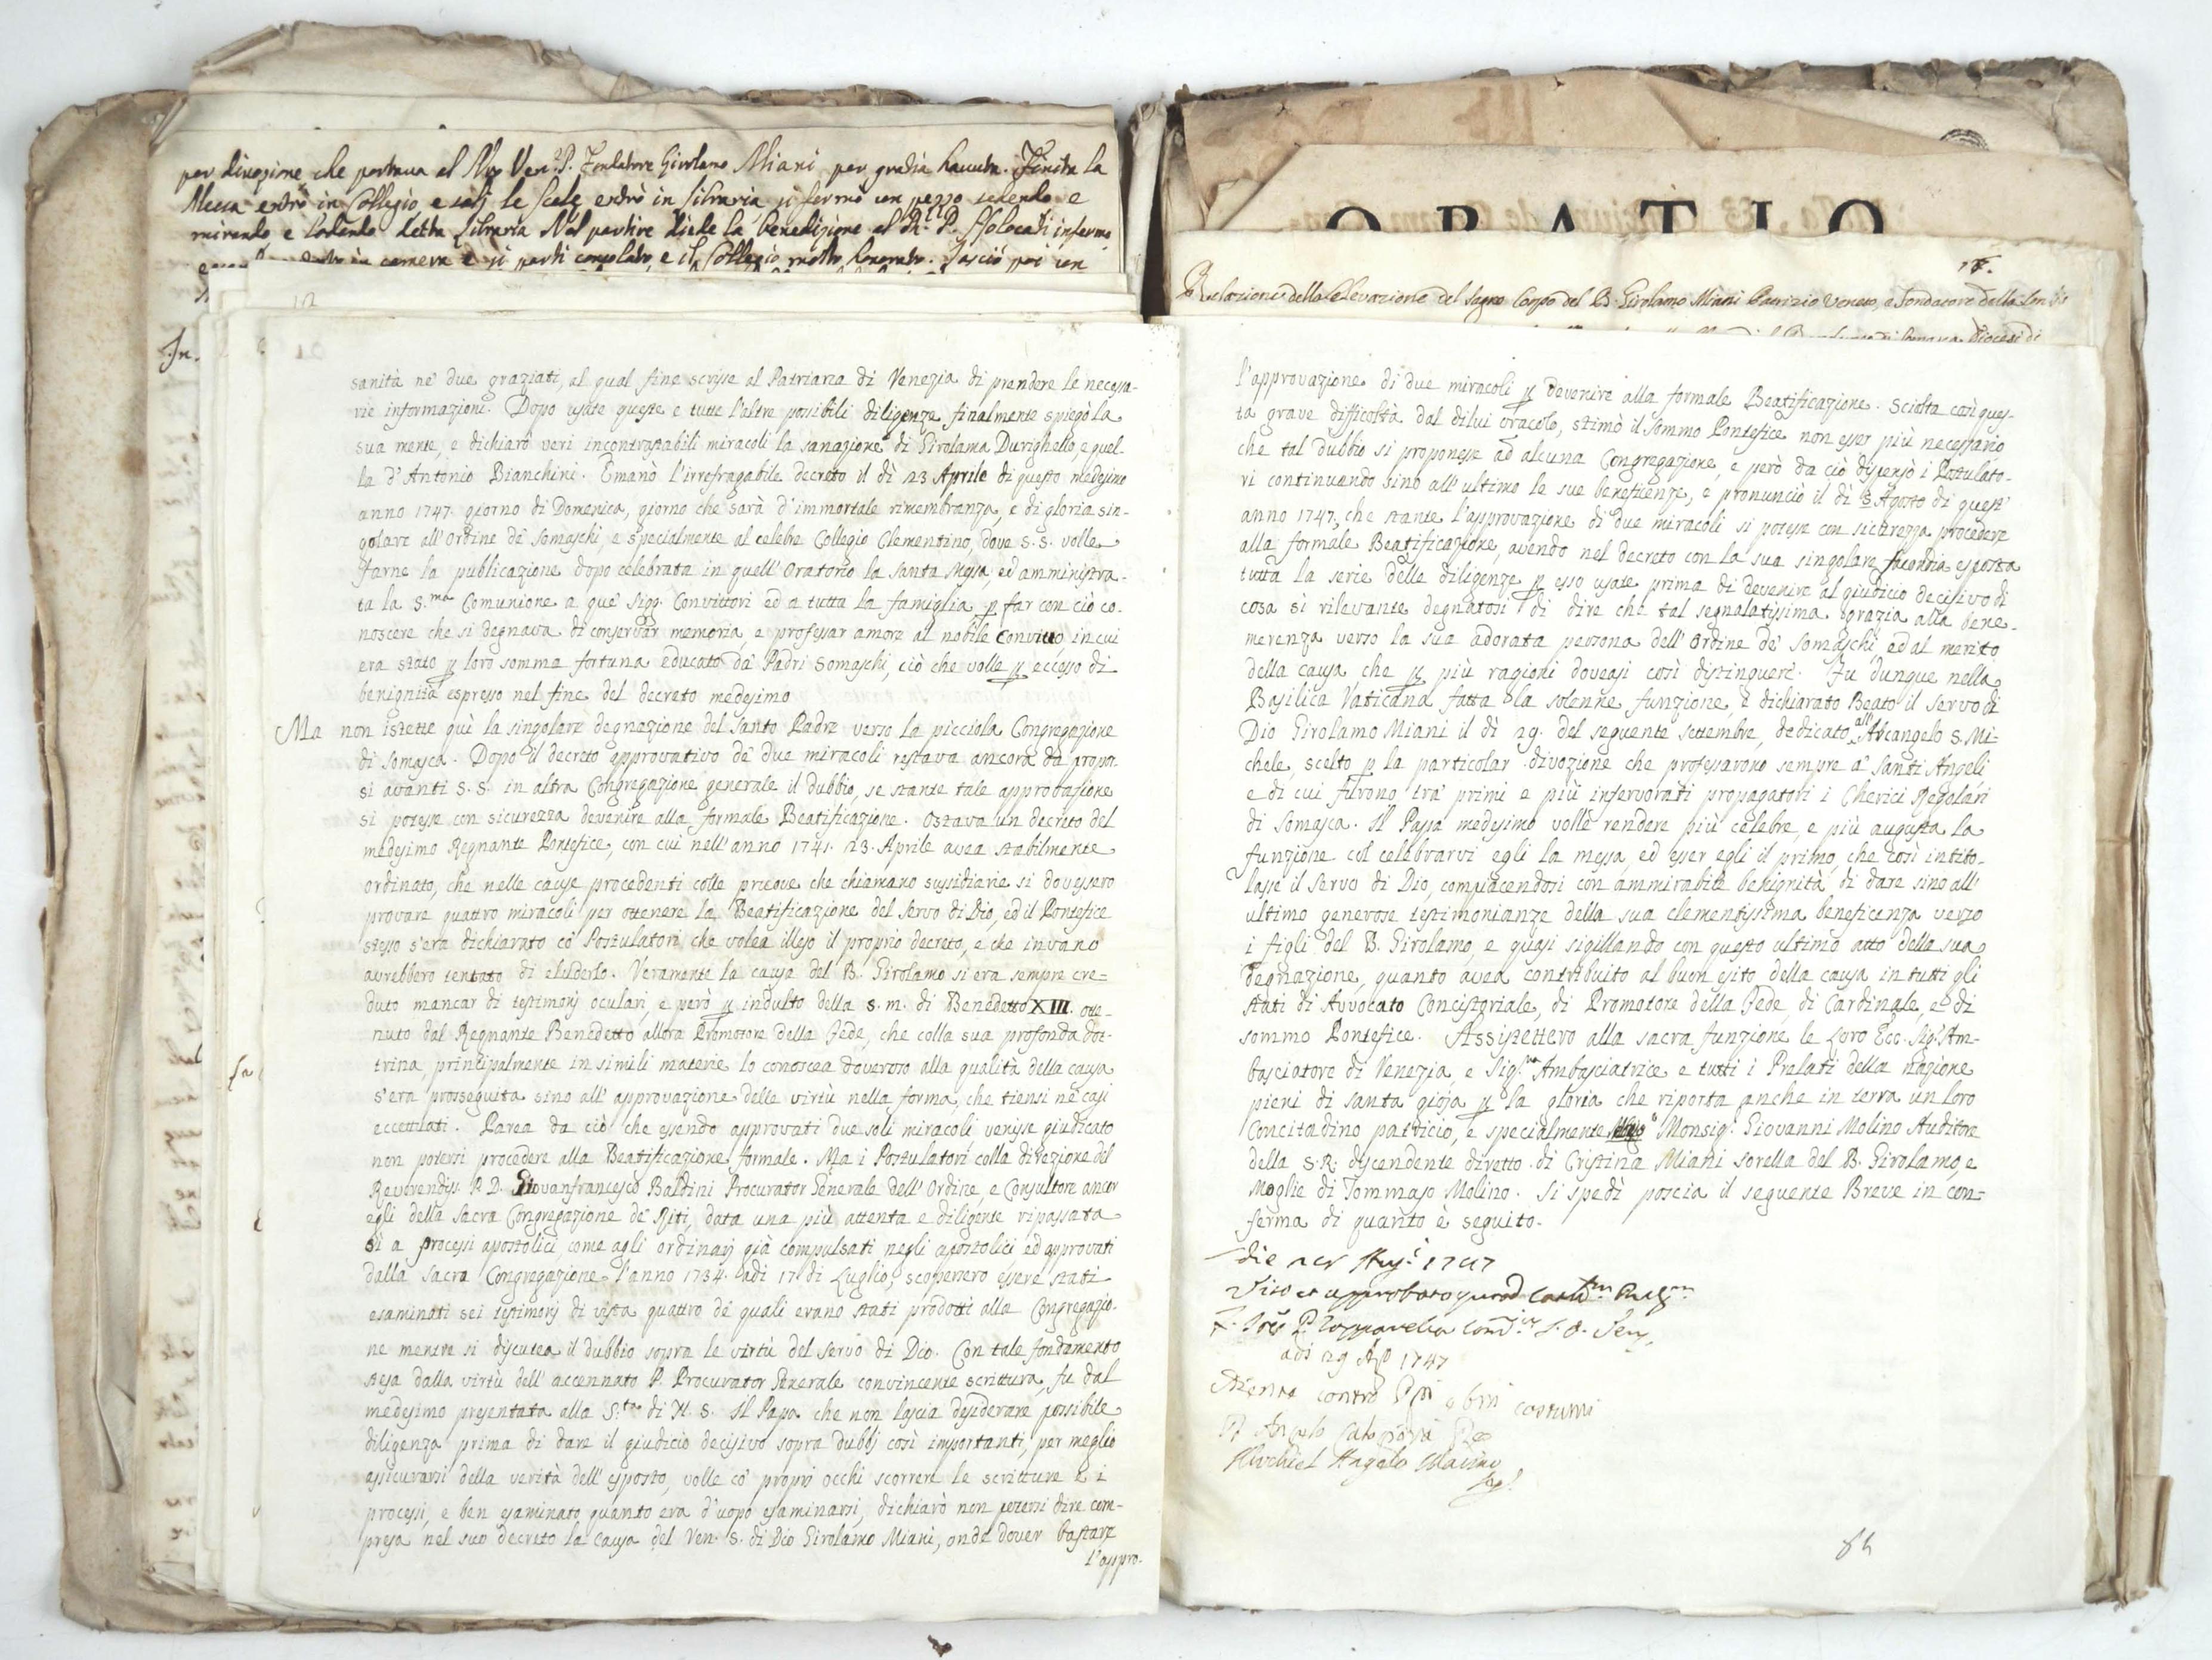 per divozione che portava al Nro Ven. P. Fondatore Girolamo Miani per gradia havuta. Finita la
Messa entrò in Collegio e salì le scale entrò in libraria si fermò un pezzo sedendo e
mirando e lodando detta libraria Nel partire diede la benedizione al infermo
in camera e si partì consolato, e il Collegio molto honorato. Lasciò poi un
ORATIO
Relazione della Elevazione del Sagro Corpo del B. Girolamo Miani Patrizio Veneto, e Fondatore della
sanità ne' due graziati, al qual fine scrisse al Patriarca di Venezia di prendere le necessa-
rie informazioni. Dopo usate queste e tutte l'altre possibili diligenze finalmente spiegò la
sua mente, e dichiarò veri incontrastabili miracoli la sanazione di Girolama Durighello, e quel-
la d'Antonio Bianchini. Emanò l'irrefragabile decreto il dì 23 Aprile di questo medesimo
anno 1747. giorno di Domenica, giorno che sarà d'immortale rimembranza, e di gloria sin-
golare all'Ordine de' Somaschi, e specialmente al celebre Collegio Clementino, dove S. S. volle
farne la publicazione dopo celebrata in quell'Oratorio la santa Messa, ed amministra-
ta la S.ma Comunione a que' Sigg. Convittori ed a tutta la famiglia p far con ciò co-
noscere che si degnava di conservar memoria e professar amore al nobile Convitto, in cui
era stato p loro somma fortuna educato da' Padri Somaschi, ciò che volle p eccesso di
benignità espresso nel fine del decreto medesimo
Ma non istette quì la singolare degnazione del Santo Padre verso la picciola Congregazione
di Somasca. Dopo il decreto approvativo de' due miracoli restava ancora da propor-
si avanti S. S. in altra Congregazione generale il dubbio, se stante tale approvazione
si potesse con sicurezza devenire alla formale Beatificazione. Ostava un decreto del
medesimo Regnante Pontefice, con cui nell'anno 1741. 23. Aprile avea stabilmente
ordinato, che nelle cause procedenti colle pruove che chiamano sussidiarie si dovessero
provare quattro miracoli per ottenere la Beatificazione del Servo di Dio, ed il Pontefice
stesso s'era dichiarato co' Postulatori, che volea illeso il proprio decreto, e che invano
avrebbero tentato di eluderlo. Veramente la causa del B. Girolamo si era sempre cre=
duto mancar di testimonj oculari, e però p indulto della s. m. di Benedetto XIII. otte-
nuto dal Regnante Benedetto allora Promotore della Fede, che colla sua profonda dot-
trina, principalmente in simili materie lo conoscea doveroso alla qualità della causa
s'era prosseguita sino all'approvazione delle virtù nella forma, che tiensi ne' casi
eccettuati. Parea da ciò che essendo approvati due soli miracoli venisse giudicato
non potersi procedere alla Beatificazione formale. Ma i Postulatori colla direzione del
Reverendiss. P. D. Giovanfrancesco Baldini Procurator Generale dell'Ordine, e Consultore ancor
egli della Sacra Congregazione de' Riti, data una più attenta e diligente ripassata
sì a processi apostolici, come agli ordinarj già compulsati negli apostolici ed approvati
dalla Sacra Congregazione l'anno 1734. adi 17 di Luglio, scopersero essere stati
esaminati sei testimonj di vista quattro de' quali erano stati prodotti alla Congregazio-
ne mentre si discutea il dubbio sopra le virtù del Servo di Dio. Con tale fondamento
stesa dalla virtù dell'accennato P. Procurator Generale convincente scrittura, fu dal
medesimo presentata alla S.tà di N. S. Il Papa che non lascia desiderare possibile
diligenza prima di dare il giudicio decisivo sopra dubbj così importanti, per meglio
assicurarsi della verità dell'esposto, volle co' proprj occhi scorrere le scritture e i
processi, e ben esaminato quanto era d'uopo esaminarsi, dichiarò non potersi dire com-
presa nel suo decreto la causa del Ven. S. di Dio Girolamo Miani, onde dover bastare
l'appro-
l'approvazione di due miracoli p devenire alla formale Beatificazione. Sciolta così ques-
ta grave difficoltà dal dilui oracolo, stimò il Sommo Pontefice non esser più necessario
che tal dubbio si proponesse ad alcuna Congregazione, e però da ciò dispensò i Postulato-
ri continuando sino all'ultimo le sue beneficenze, e pronunciò il dì 5. Agosto di quest'
anno 1747, che stante l'approvazione di due miracoli si potesse con sicurezza procedere
alla formale Beatificazione, avendo nel decreto con la sua singolare facondia esposta
tutta la serie delle diligenze p esso usate prima di devenire al giudicio decisivo di
cosa sì rilevante degnatosi di dire che tal segnalatissima grazia alla bene-
merenza verso la sua adorata persona dell'Ordine de' Somaschi, ed al merito
della causa, che p più ragioni doveasi così distinguere. Fu dunque nella
Basilica Vaticana fatta la solenne funzione, e dichiarato Beato il Servo di
Dio Girolamo Miani il dì 29. del seguente settembre, dedicato all'Arcangelo S. Mi=
chele, scelto p la particolar divozione che professarono sempre a' Santi Angeli
e di cui furono tra' primi e più infervorati propagatori i Cherici Regolari
di Somasca. Il Papa medesimo volle rendere più celebre, e più augusta la
funzione col celebrarvi egli la messa, ed esser egli il primo, che così intito-
lasse il Servo di Dio, compiacendosi con ammirabile benignità di dare sino all'
ultimo generose testimonianze della sua clementissima beneficenza verso
i figli del B. Girolamo, e quasi sigillando con questo ultimo atto della sua
degnazione, quanto avea contribuito al buon esito della causa in tutti gli
stati di Avvocato Concistoriale, di Promotore della Fede, di Cardinale, e di
sommo Pontefice. Assistettero alla sacra funzione le Loro Ecc. Sig. Am-
basciatore di Venezia, e Sig.ra Ambasciatrice e tutti i Prelati della nazione
pieni di santa gioja p la gloria che riporta anche in terra un loro
Concitadino patricio, e specialmente Monsig. Giovanni Molino Auditore
della S. R. discendente diretto di Cristina Miani sorella del B. Girolamo, e
Moglie di Tommaso Molino. Si spedì poscia il seguente Breve in con=
ferma di quanto è seguito.
1747
adi 29 1747
contro costumi